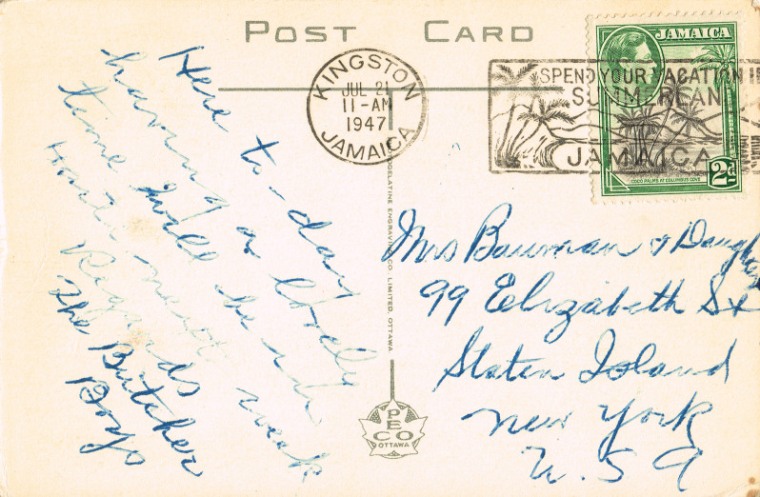 POST CARD
KINGSTON
JUL 21
11-AM
1947
JAMAICA
SPEND YOUR VACATION I
SUMMERLAN
JAMAICA
JAMAICA
COCO PALMS AT COLUMBUS COVE
2d
Here to-day
having a lovely
time will be
next week
Regards
The Butcher
Boys
GELATINE ENGRAVING CO. LIMITED, OTTAWA
PECO
OTTAWA
Mrs Bauman & Daughter
99 Eelizabeth St
Staten Island
New York
U.S A